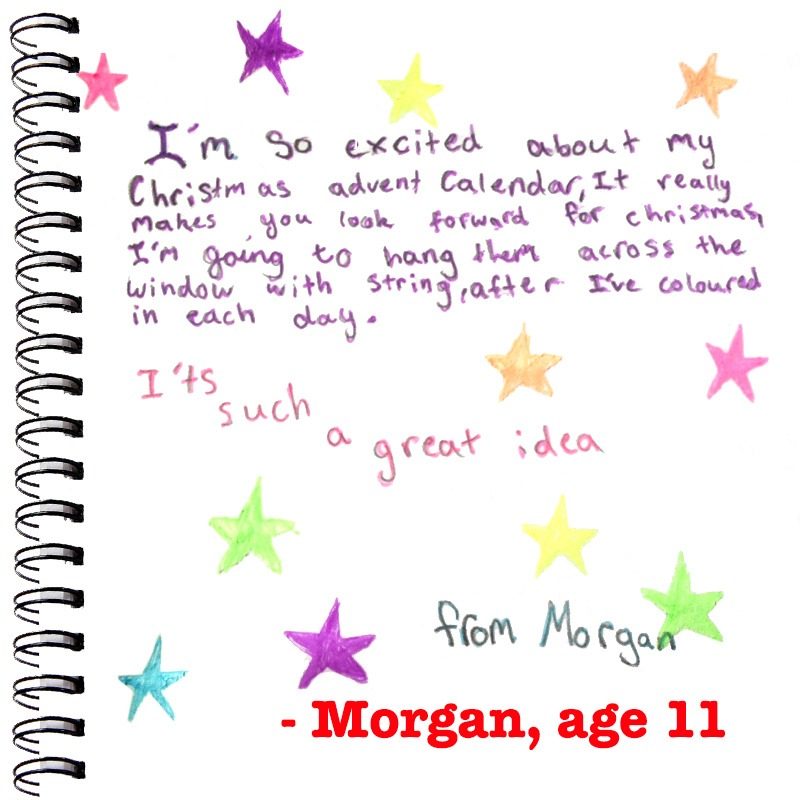 I'm so excited about my
Christmas advent Calendar, It really
makes you look forward for christmas,
I'm going to hang them across the
window with string, after I've coloured
in each day.
I'ts such a great idea
from Morgan
- Morgan, age 11